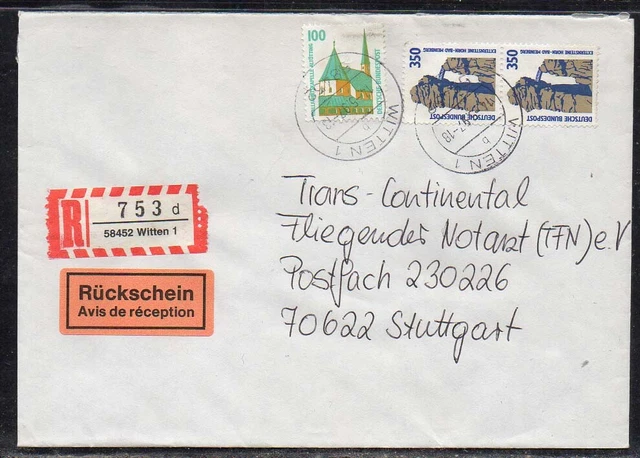 100
WALLFAHRTSKAPELLE ALTÖTTING
DEUTSCHE BUNDESPOST
350
EXTERNSTEINE HORN-BAD MEINBERG
DEUTSCHE BUNDESPOST
350
EXTERNSTEINE HORN-BAD MEINBERG
DEUTSCHE BUNDESPOST
WITTEN 1
b
WITTEN 1
b
R 753 d
58452 Witten 1
Rückschein
Avis de réception
Trans-Continental
Fliegender Notarzt (TFN) e.V
Postfach 230226
70622 Stuttgart